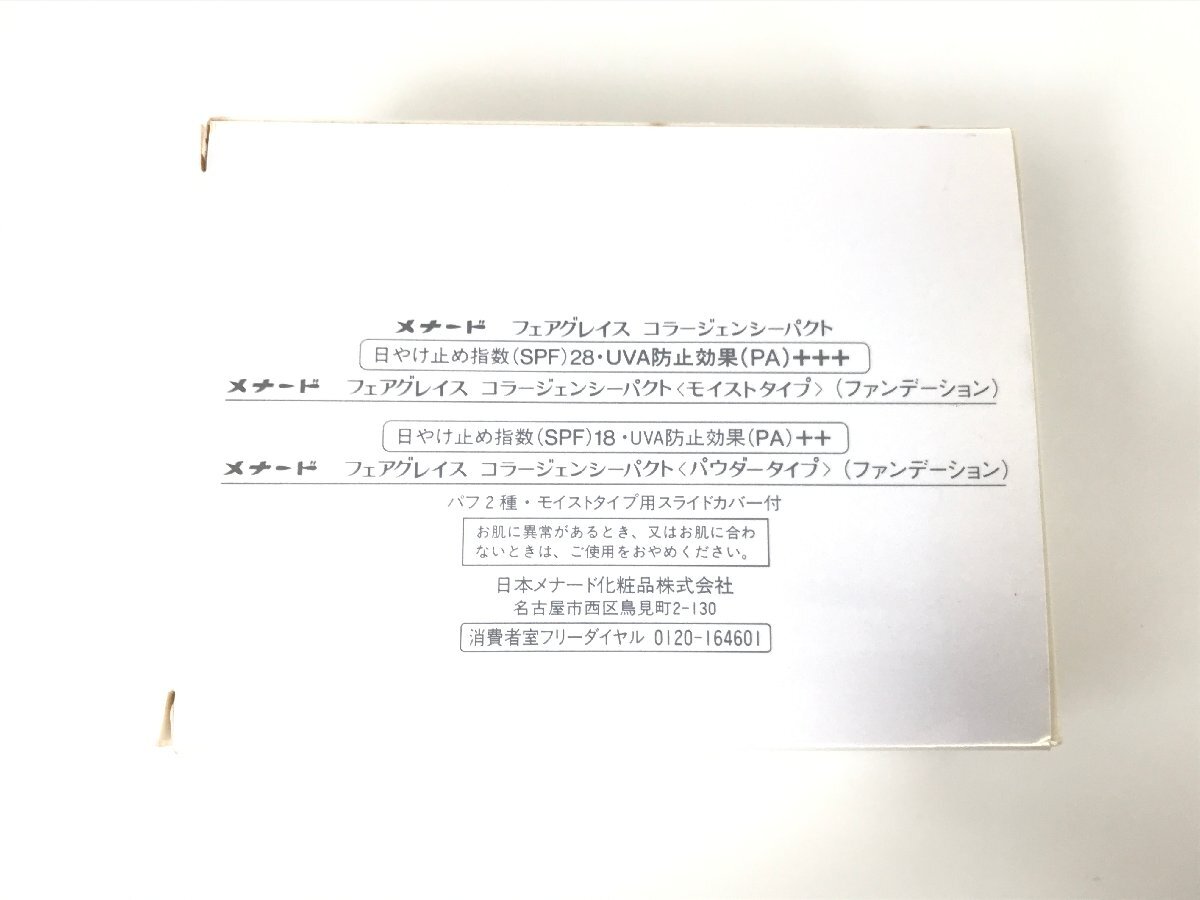 メナード フェアグレイス コラージェンシーパクト
日やけ止め指数(SPF)28・UVA防止効果(PA)+++
メナード フェアグレイス コラージェンシーパクト〈モイストタイプ〉(ファンデーション)
日やけ止め指数(SPF)18・UVA防止効果(PA)++
メナード フェアグレイス コラージェンシーパクト〈パウダータイプ〉(ファンデーション)
パフ2種・モイストタイプ用スライドカバー付
お肌に異常があるとき、又はお肌に合わ
ないときは、ご使用をおやめください。
日本メナード化粧品株式会社
名古屋市西区鳥見町2-130
消費者室フリーダイヤル 0120-164601